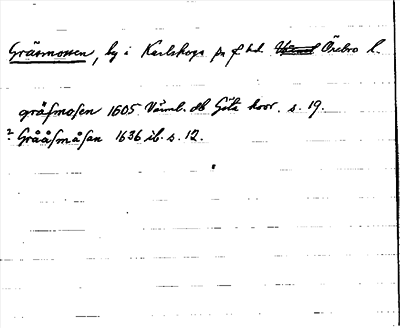 Gräsmossen, by i Karlskoga sn o hd. Örebro l.
gräsmosen 1605 Värml. db Göta hovr. s. 19.
? Grååsmåsan 1636 ib. s. 12.